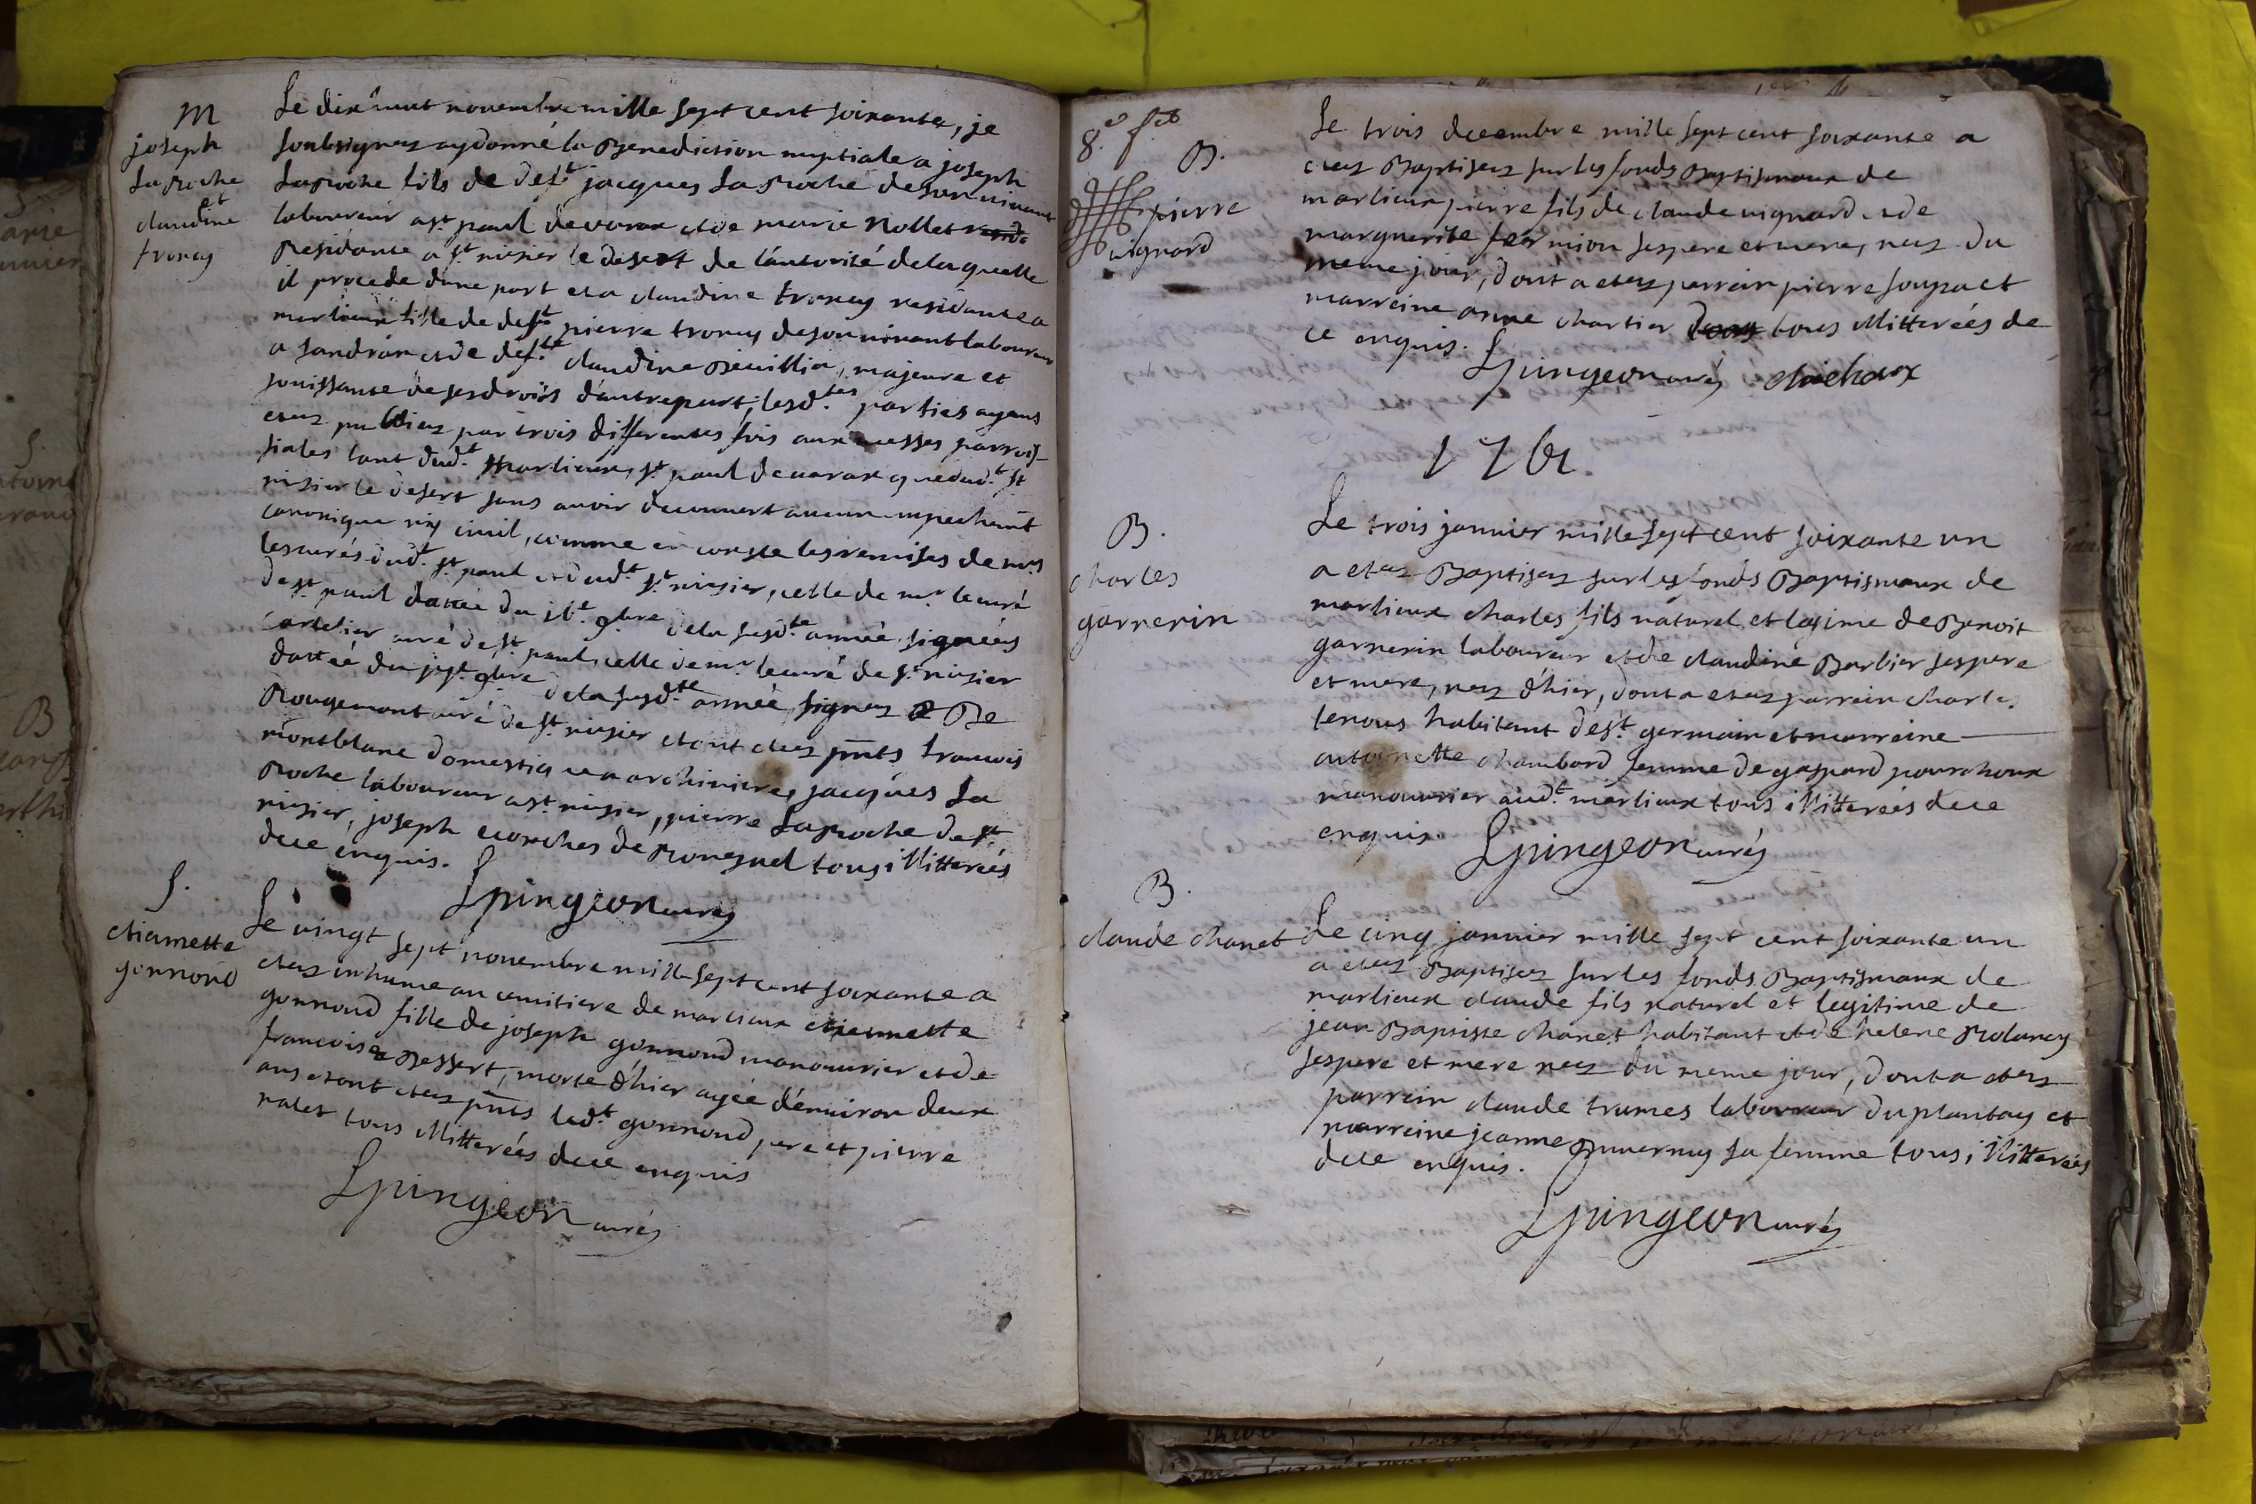 M
joseph
La Roche
et
claudine
troncy
Le dix huit novembre mille sept cent soixante, je
soubsignez ay donné la Benediction nuptiale a joseph
Laroche fils de deft jacques La Roche de son vivant
laboureur a st. paul de varax et de marie Nollet
Residante a st. nisier le desert de l'autorité de laquelle
il procede d'une part et a claudine troncy residante a
marlieux fille de deft pierre troncy de son vivant laboureur
a sandran et de defte claudine , majeure et
jouissante de ses droits d'autre part, lesdtes parties ayans
etez publiez par trois differentes fois aux messes parrois-
siales tant dudt. Marlieux, st. paul de varax que dudt. st
nisier le desert sans avoir decouvert aucun empechemt
canonique ny civil, comme en conste les remises de mrs
les curés dudt. st. paul et dudt st. nisier, celle de mr. le curé
de st. paul dattée du 16e. 9bre de la susdte. année signées
cartelier curé de st. paul, celle de mr. le curé de st. nisier
dattée du 9bre de la susdte. année, signez De
Rougemont curé de st. nisier et ont etez pnts francois
montblanc domestique a archiniere, jacques La
Roche laboureur a st. nisier, pierre La Roche de st.
nisier, joseph de tous illitterées
de ce enquis. Epingeon curés
S.
etiamette
gonnond
Le vingt sept novembre mille sept cent soixante a
etez inhumé au cemitiere de marlieux etiennette
gonnond fille de joseph gonnond manouvrier et de
francoise Bessert, morte d'hier agée d'environ deux
ans et ont etez pnts ledt. gonnond pere et pierre
nalet tous illitterées de ce enquis
Epingeon curés
8. ft
B.
pierre
vignard
Le trois decembre mille sept cent soixante a
etez Baptisez sur les fonds Baptismaux de
marlieux pierre fils de claude vignard et de
marguerite fermion ses pere et mere, nez du
meme jour, dont a etez parrain pierre soupa et
marreine anne chartier tous illitterées de
ce enquis. Epingeon curés
1761.
B.
charles
garnerin
Le trois janvier mille sept cent soixante un
a etez Baptisez sur les fonds Baptismaux de
marlieux charles fils naturel et legitime de Benoit
garnerin laboureur et de claudine Barbier ses pere
et mere, nez d'hier, dont a etez parrain charles
lenoux habitant de st. germain et marreine
antoinette chambard femme de gaspard pourchoux
manouvrier audt. marlieux tous illitterées de ce
enquis. Epingeon curés
B.
claude chanet
Le cinq janvier mille sept cent soixante un
a etez Baptisez sur les fonds Baptismaux de
marlieux claude fils naturel et legitime de
jean Baptiste chanet habitant et de helene Rolancy
ses pere et mere nez du meme jour, dont a etez
parrein claude trumes laboureur du plantay et
marreine jeanne sa femme tous illitterées
de ce enquis.
Epingeon curés